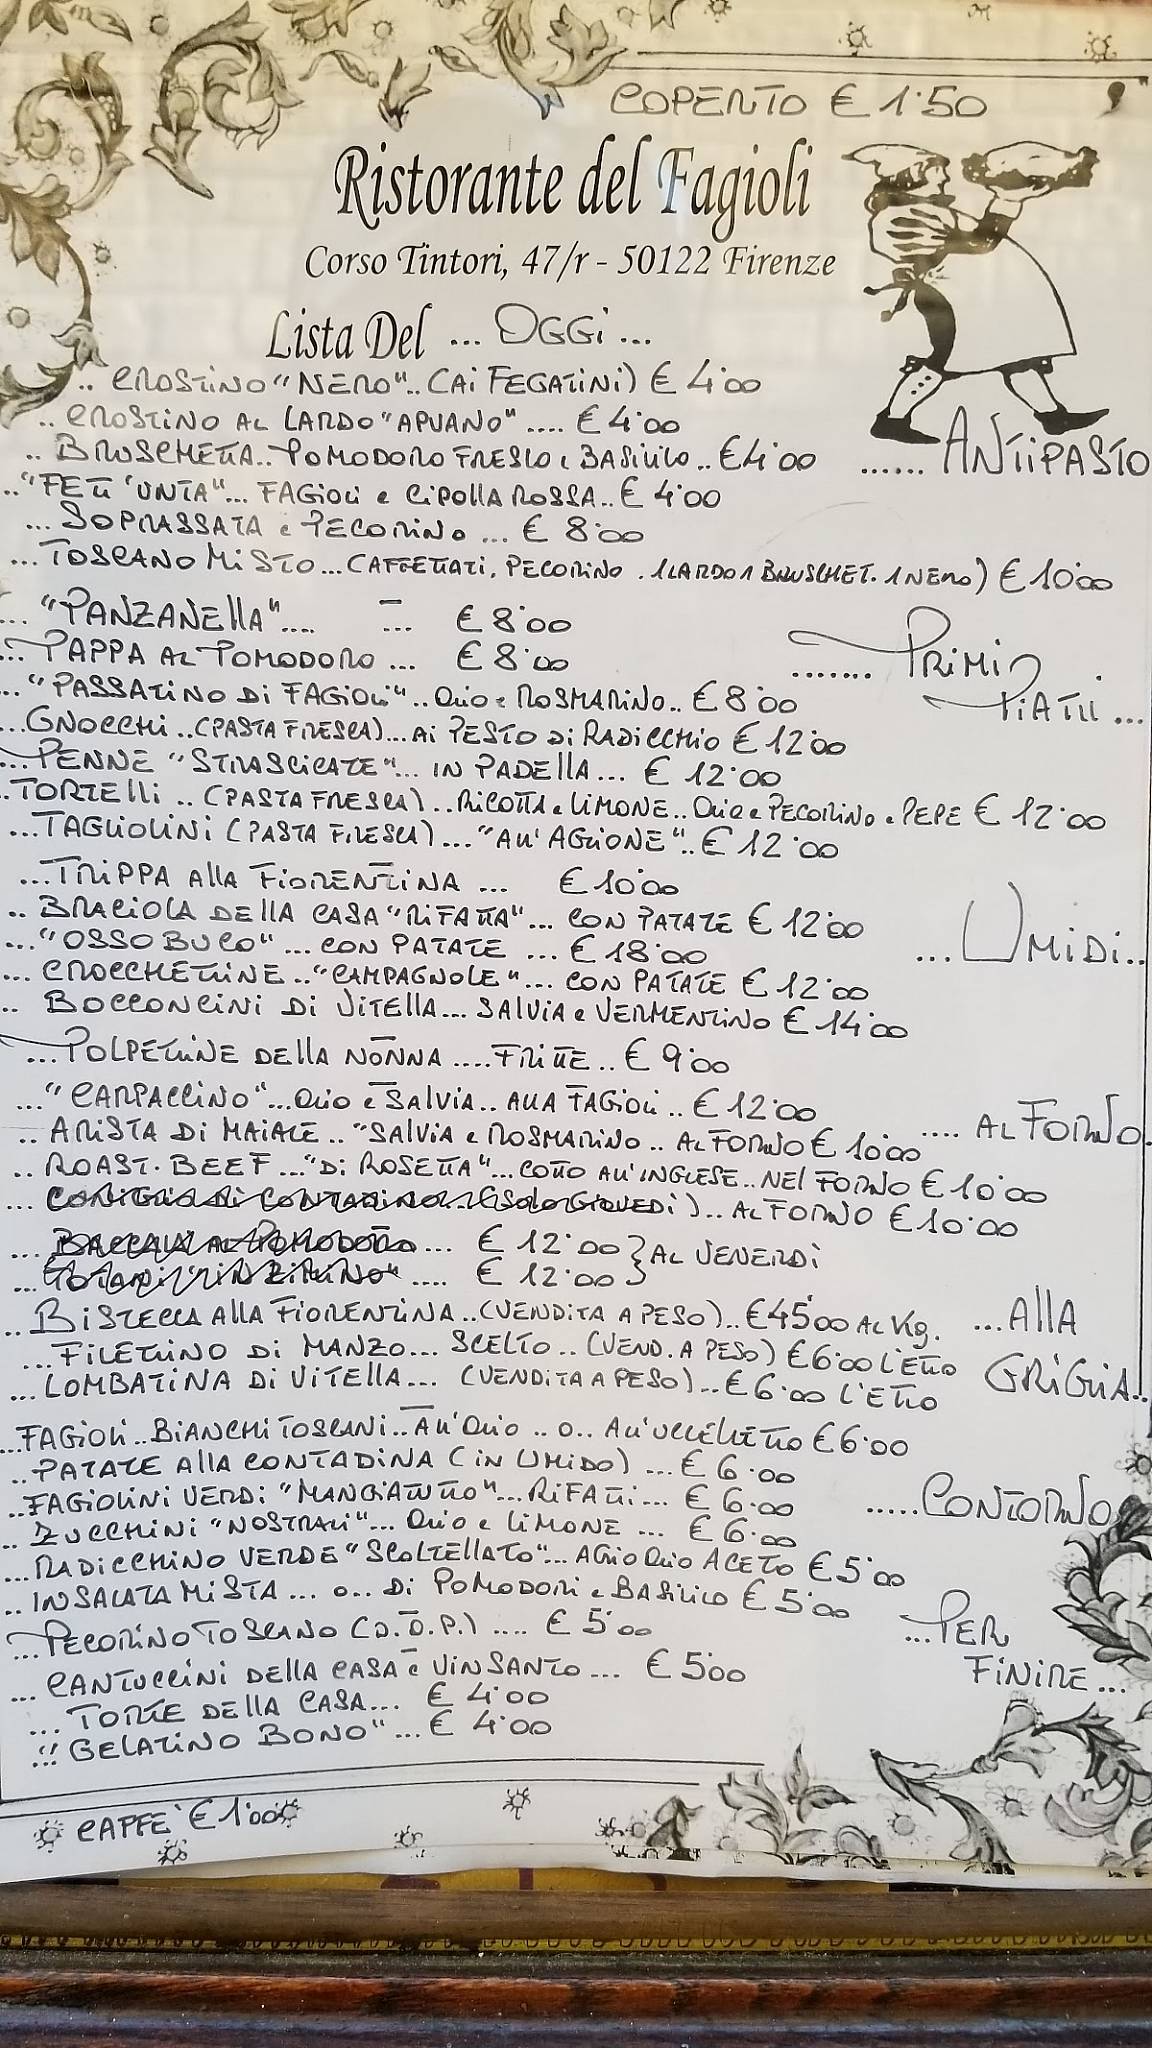 COPERTO € 1.50
Ristorante del Fagioli
Corso Tintori, 47/r - 50122 Firenze
Lista Del ... OGGI ...
.. CROSTINO "NERO".. (AI FEGATINI) € 4.00
.. CROSTINO AL LARDO "APUANO" .... € 4.00
.. BRUSCHETTA.. POMODORO FRESCO e BASILICO .. € 4.00 ...... ANTIPASTO
.. "FETT'UNTA"... FAGIOLI e CIPOLLA ROSSA.. € 4.00
... SOPRASSATA e PECORINO ... € 8.00
... TOSCANO MISTO ... (AFFETTATI, PECORINO . 1 LARDO 1 BRUSCHET. 1 NERO) € 10.00
... "PANZANELLA".... ... € 8.00
... PAPPA AL POMODORO ... € 8.00 ....... PRIMI
... "PASSATINO DI FAGIOLI".. OLIO e ROSMARINO.. € 8.00 PIATTI ...
... GNOCCHI .. (PASTA FRESCA)... AI PESTO DI RADICCHIO € 12.00
... PENNE "STRASCICATE"... IN PADELLA ... € 12.00
.. TORTELLI .. (PASTA FRESCA) .. RICOTTA e LIMONE.. OLIO e PECORINO e PEPE € 12.00
... TAGLIOLINI (PASTA FRESCA) ... "ALL'AGLIONE".. € 12.00
... TRIPPA ALLA FIORENTINA ... € 10.00
.. BRACIOLA DELLA CASA "RIFATTA"... CON PATATE € 12.00
... "OSSOBUCO" ... CON PATATE ... € 18.00 ... UMIDI..
... CROCCHETTINE .. "CAMPAGNOLE"... CON PATATE € 12.00
.. BOCCONCINI DI VITELLA... SALVIA e VERMENTINO € 14.00
... POLPETTINE DELLA NONNA ..... FRITTE .. € 9.00
... "CARPACCINO"... OLIO e SALVIA.. ALLA FAGIOLI .. € 12.00
.. ARISTA DI MAIALE .. "SALVIA e ROSMARINO .. AL FORNO € 10.00 .... AL FORNO.
.. ROAST.BEEF ... "DI ROSETTA"... COTTO ALL'INGLESE.. NEL FORNO € 10.00
... CONIGLIO DI CONTADINO... (SOLO GIOVEDÌ).. AL FORNO € 10.00
... BACCALÀ AL POMODORO ... € 12.00 } AL VENERDÌ
... TOTANI "IN ZIMINO" .... € 12.00
.. BISTECCA ALLA FIORENTINA .. (VENDITA A PESO).. € 45.00 AL Kg. ... ALLA
... FILETTINO DI MANZO... SCELTO .. (VEND. A PESO) € 6.00 L'ETTO GRIGLIA..
... LOMBATINA DI VITELLA ... (VENDITA A PESO) .. € 6.00 L'ETTO
... FAGIOLI .. BIANCHI TOSCANI.. ALL'OLIO .. O.. ALL'UCCELLETTO € 6.00
.. PATATE ALLA CONTADINA (IN UMIDO) ... € 6.00
... FAGIOLINI VERDI "MANGIATUTTO"... RIFATTI ... € 6.00 ..... CONTORNO
.. ZUCCHINI "NOSTRALI"... OLIO e LIMONE ... € 6.00
... RADICCHINO VERDE "SCOLTELLATO"... AGLIO OLIO ACETO € 5.00
.. INSALATA MISTA ... O.. DI POMODORI e BASILICO € 5.00
... PECORINO TOSCANO (D.O.P.) .... € 5.00 ... PER
... CANTUCCINI DELLA CASA e VIN SANTO ... € 5.00 FINIRE ...
... TORTE DELLA CASA... € 4.00
... "GELATINO BONO"... € 4.00
CAFFE' € 1.00